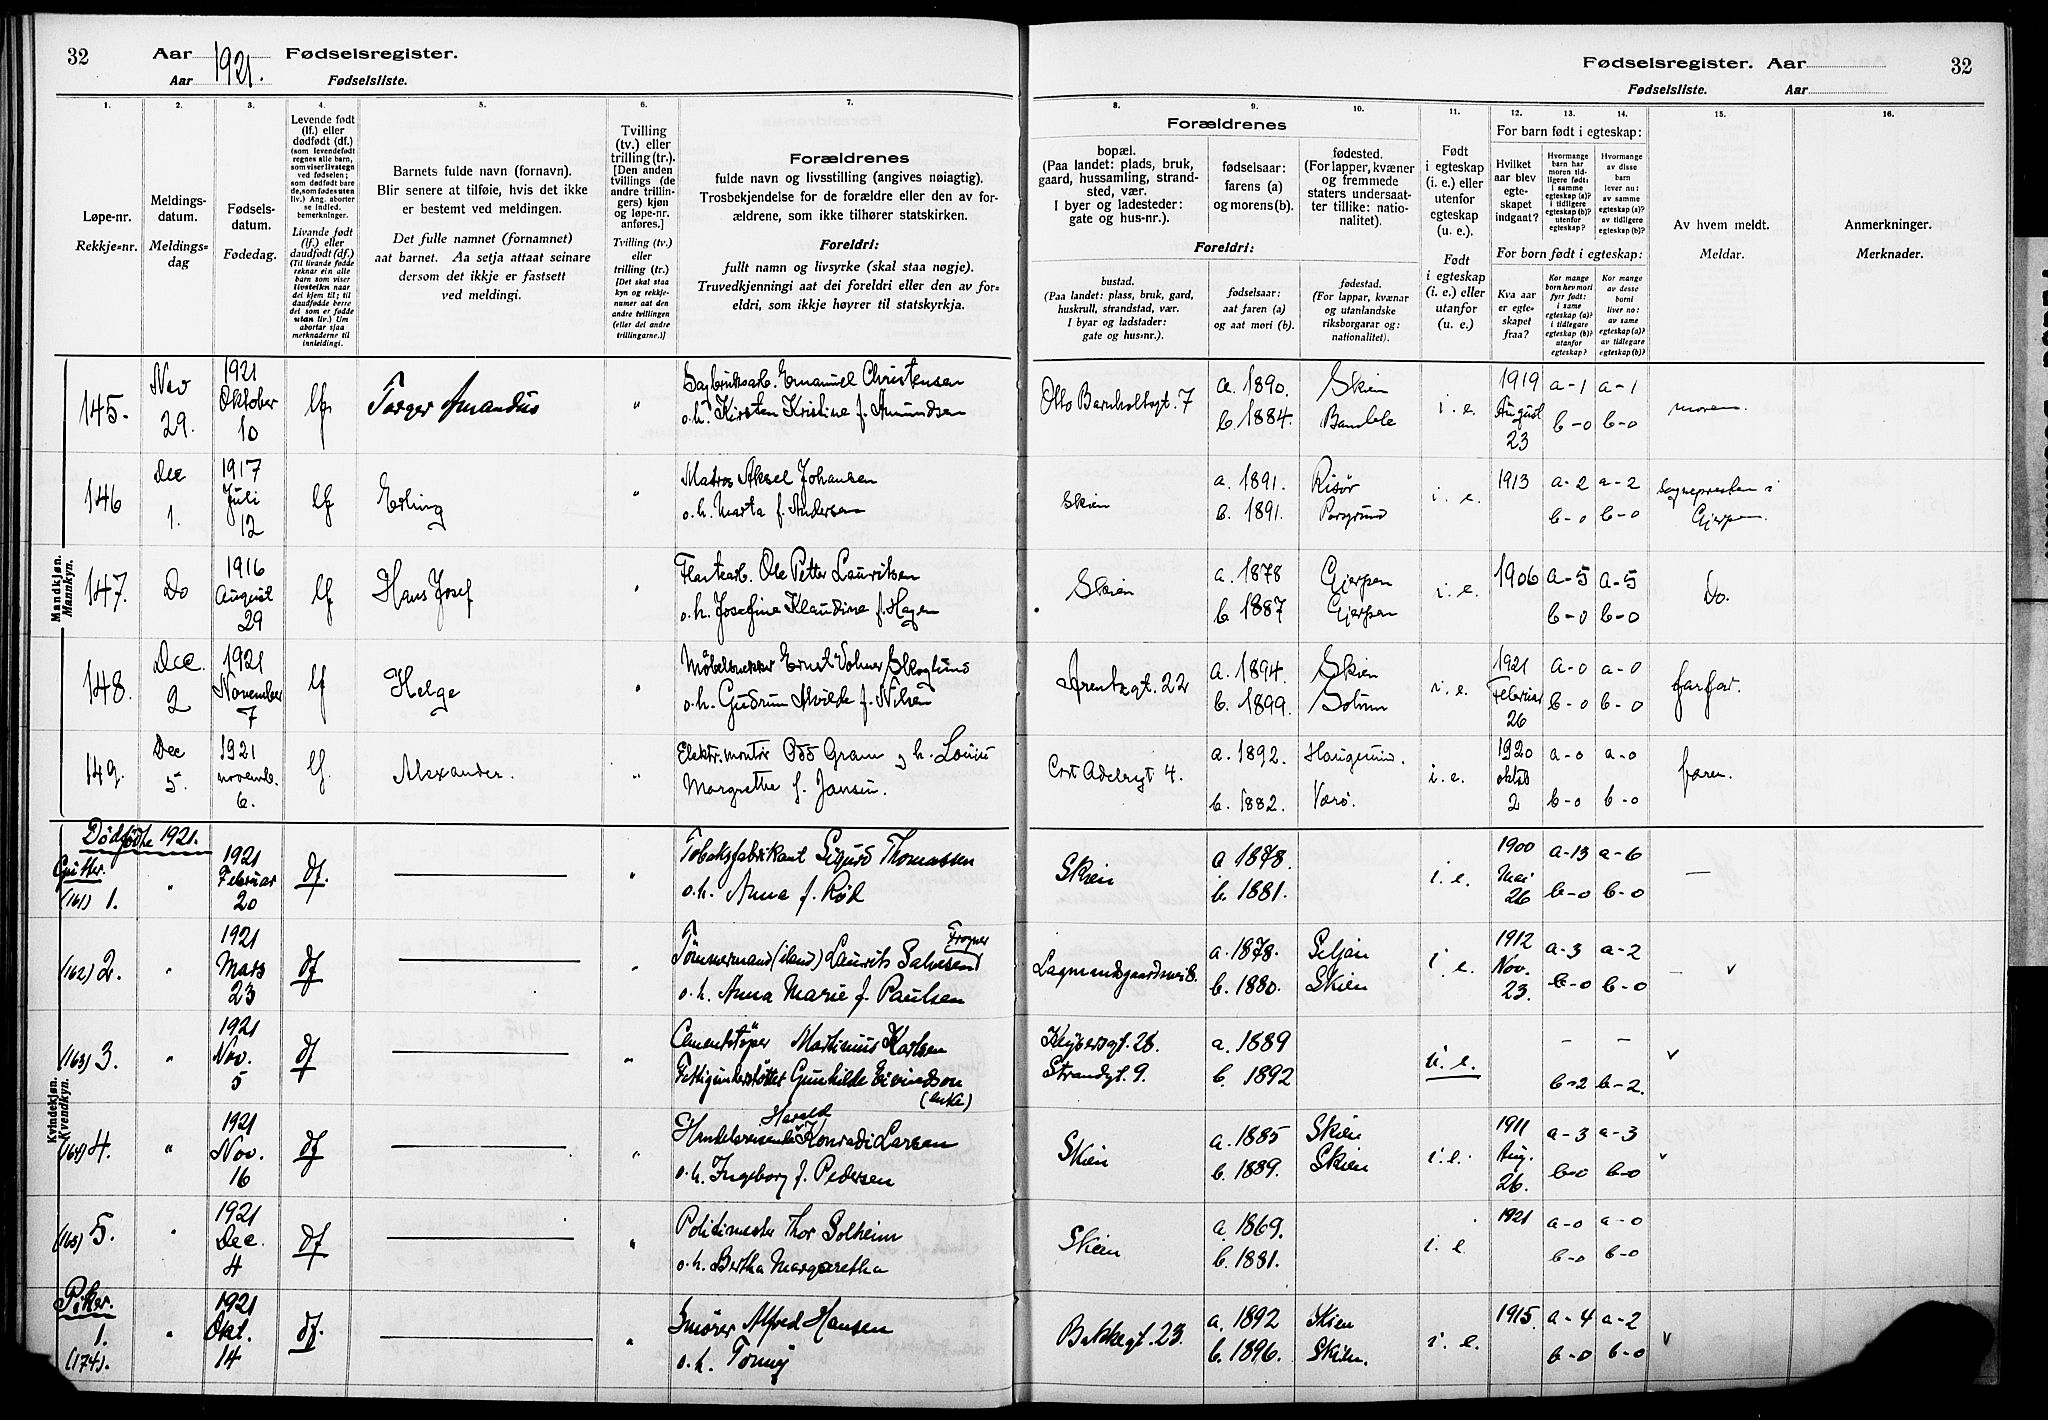 32
Aar 1921. Fødselsregister.
Aar Fødselsliste.
Fødselsregister. Aar
32
Fødselsliste. Aar
1. 2. 3. 4. 5. 6. 7. 8. 9. 10. 11. 12. 13. 14. 15. 16.
Løpe-nr.
Rekkje-nr.
Meldings-
datum.
Meldings-
dag
Fødsels-
datum.
Fødedag.
Levende født
(lf.) eller
dødfødt (df.)
(som levendefødt
regnes alle barn,
som viser livstegn
ved fødselen;
som dødfødt bare
de, som fødes uten
liv.) Ang. aborter
se indled.
bemerkninger.
Livande født
(lf.) eller
daudfødt (df.)
(Til livande fødde
reknar ein alle
barn som viser
livsteikn naar
dei kjem til; til
daudfødde berre
dei som er fødde
utan liv.) Um
abortar sjaa
merknaderne til
innleidingi.
Barnets fulde navn (fornavn).
Blir senere at tilføie, hvis det ikke
er bestemt ved meldingen.
Det fulle namnet (fornamnet)
aat barnet. Aa setja attaat seinare
dersom det ikkje er fastsett
ved meldingi.
Tvilling
(tv.) eller
trilling (tr.).
[Den anden
tvillings (de
andre trillin-
gers) kjøn
og løpe-nr.
anføres.]
Tvilling (tv.)
eller
trilling (tr.)
[Det skal staa
kyn og rekkje-
numer aat den
andre tvillingen
(eller dei andre
trillingarne.)]
Forældrenes
fulde navn og livsstilling (angives nøiagtig).
Trosbekjendelse for de forældre eller den av for-
ældrene, som ikke tilhører statskirken.
Foreldri:
fullt namn og livsyrke (skal staa nøgje).
Truvedkjenningi aat dei foreldri eller den av for-
eldri, som ikkje høyrer til statskyrkja.
Forældrenes
bopæl.
(Paa landet: plads, bruk,
gaard, hussamling, strand-
sted, vær.
I byer og ladesteder:
gate og hus-nr.).
fødselsaar:
farens (a)
og morens (b).
fødested.
(For lapper, kvæner
og fremmede
staters undersaat-
ter tillike: natio-
nalitet).
Foreldri:
bustad.
(Paa landet: plass, bruk, gard,
huskrull, strandstad, vær.
I byar og ladstader:
gate og hus-nr.).
fødselsaar:
aat faren (a)
og aat mori (b).
fødestad.
(For lappar, kvænar
og utanlandske
riksborgarar og:
nationalitet).
Født
i egteskap
(i. e.) eller
utenfor
egteskap
(u. e.).
Født
i egteskap
(i. e.) eller
utanfor
(u. e.).
For barn født i egteskap:
Hvilket
aar blev
egte-
skapet
indgaat?
Hvormange
barn har
moren tid-
ligere født:
i samme
egteskap (a)?
i tidligere
egteskap (b)?
utenfor
egteskap?
Hvormange
av disse
barn
lever nu:
av samme
egteskap (a)?
av tidligere
egteskap (b)?
For born født i egteskap:
Kva aar
er egte-
skapet
fraa?
Kor mange
born hev mori
fyrr født:
i same
egteskap (a)?
i tidlegare
egteskap (b)?
utanfor
egteskap?
Kor mange
av desse
borni
liver no:
av same
egteskap (a)?
av tidlegare
egteskap (b)?
Av hvem meldt.
Meldar.
Anmerkninger.
Merknader.
Mandkjøn.
Mannkyn.
145. Nov 29. 1921 Oktober 10 lf Torger Amandus " Sagbruksarb. Emanuel Christensen
o.h. Kirsten Kristine f. Amundsen
Otto Barnholtsgt. 7 a. 1890. Skien i. e. 1919 August 23 a-1 a-1 moren.
b. 1884. Bamble b-0 b-0
146 Dec 1. 1917 Juli 12 lf Erling " Matros Aksel Johansen
o.h. Marta f. Andersen
Skien a. 1891. Risør i. e. 1913 a-2 a-2 Sognepresten i
b. 1891. Porsgrund b-0 b-0 Gjerpen.
147. Do 1916 August 29 lf Hans Josef " Ole Petter Lauritsen
o.h. Josefine Klaudine f. Hagen
Skien a. 1878 Gjerpen i. e. 1906 a-5 a-5 Do.
b. 1887 Gjerpen b-0 b-0
148. Dec. 2 1921 November 7 lf Helge " Møbelsnekker Ernst Volmer Skoglund
o.h. Gudrun Alvilde f. Nilsen
Arentzgt. 22 a. 1894. Skien i. e. 1921 Februar 26 a-0 a-0 farfar.
b. 1899. Solum b-0 b-0
149. Dec 5. 1921 novemb. 6. lf. Alexander. " Elektr. montør Odd Gram og h. Louise
Margrethe f. Jansen.
Cort Adelergt 4. a. 1892. Haugesund. i. e. 1920 oktob 2 a-0 a-0 faren.
b. 1882. Værø. b-0 b-0
Kvindekjøn.
Kvendkyn.
Dødfødte 1921.
Gutter.
(161) 1. " 1921 Februar 20 df. " Tobaksfabrikant Sigurd Thomassen
o.h. Anna f. Rød
Skien a. 1878. i. e. 1900 Mai 26 a-13 a-6 —
b. 1881. b-0 b-0
(162) 2. " 1921 Mars 23 df " Tømmermand (iland) Laurits Salvesen Frogner
o.h. Anna Marie f. Paulsen
Lagmandsgaardsvei 8. a. 1878. Siljan i. e. 1912 Nov. 23. a-3 a-2 — v
b. 1880. Skien b-0 b-0
(163) 3. " 1921 Nov. 5 df " Cementstøper Martinius Karlsen
Fattigunderstøttet Gunhilde Eivindson
(enke)
Kleysersgt. 28. a. 1889 u. e. - - v
Strandgt. 9. b. 1892 b-2 b-2.
(164) 4. " 1921 Nov. 16 df " Handelsreisende Harald Konradi Larsen
o.h. Ingeborg f. Pedersen
Skien a. 1885 Skien i. e. 1911 Aug. 26. a-3 a-3 v
b. 1889. Skien b-0 b-0
(165) 5. " 1921 Dec. 4 df " Politimester Thor Solheim
o.h. Bertha Margaretha
Skien a. 1869. i. e. 1921 a-0 a-0
b. 1881. b-0 b-0
Piker.
1. (174). " 1921 Okt. 14 df. " Smører Alfred Hansen
o.h. Tonny
Bakkegt. 23. a. 1892 Skien i. e. 1915. a-4 a-2 v
b. 1896. Skien. b-0 b-0